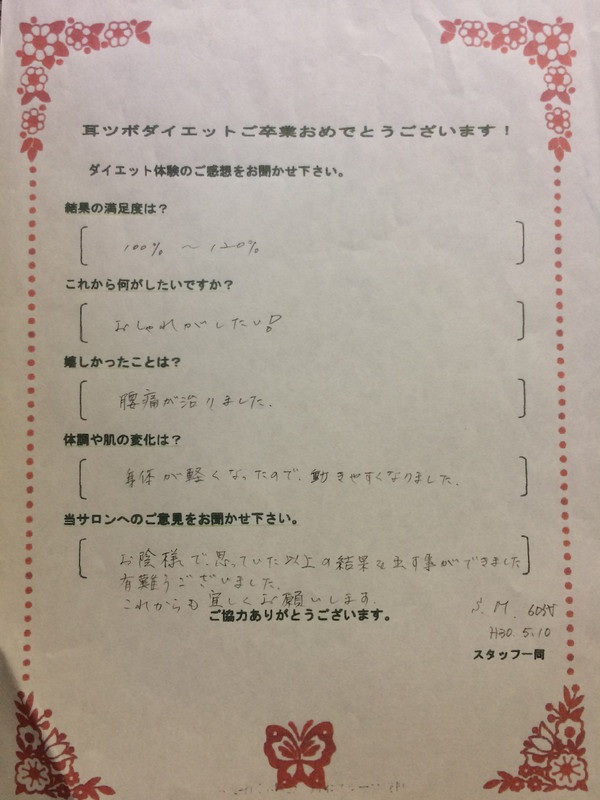 耳ツボダイエットご卒業おめでとうございます！
ダイエット体験のご感想をお聞かせ下さい。
結果の満足度は？
100% ～ 120%
これから何がしたいですか？
おしゃれがしたい！
嬉しかったことは？
腰痛が治りました。
体調や肌の変化は？
身体が軽くなったので、動きやすくなりました。
当サロンへのご意見をお聞かせ下さい。
お陰様で、思っていた以上の結果を出す事ができました
有難うございました。
これからも宜しくお願いします。
ご協力ありがとうございます。
S.M. 60代
H30.5.10
スタッフ一同